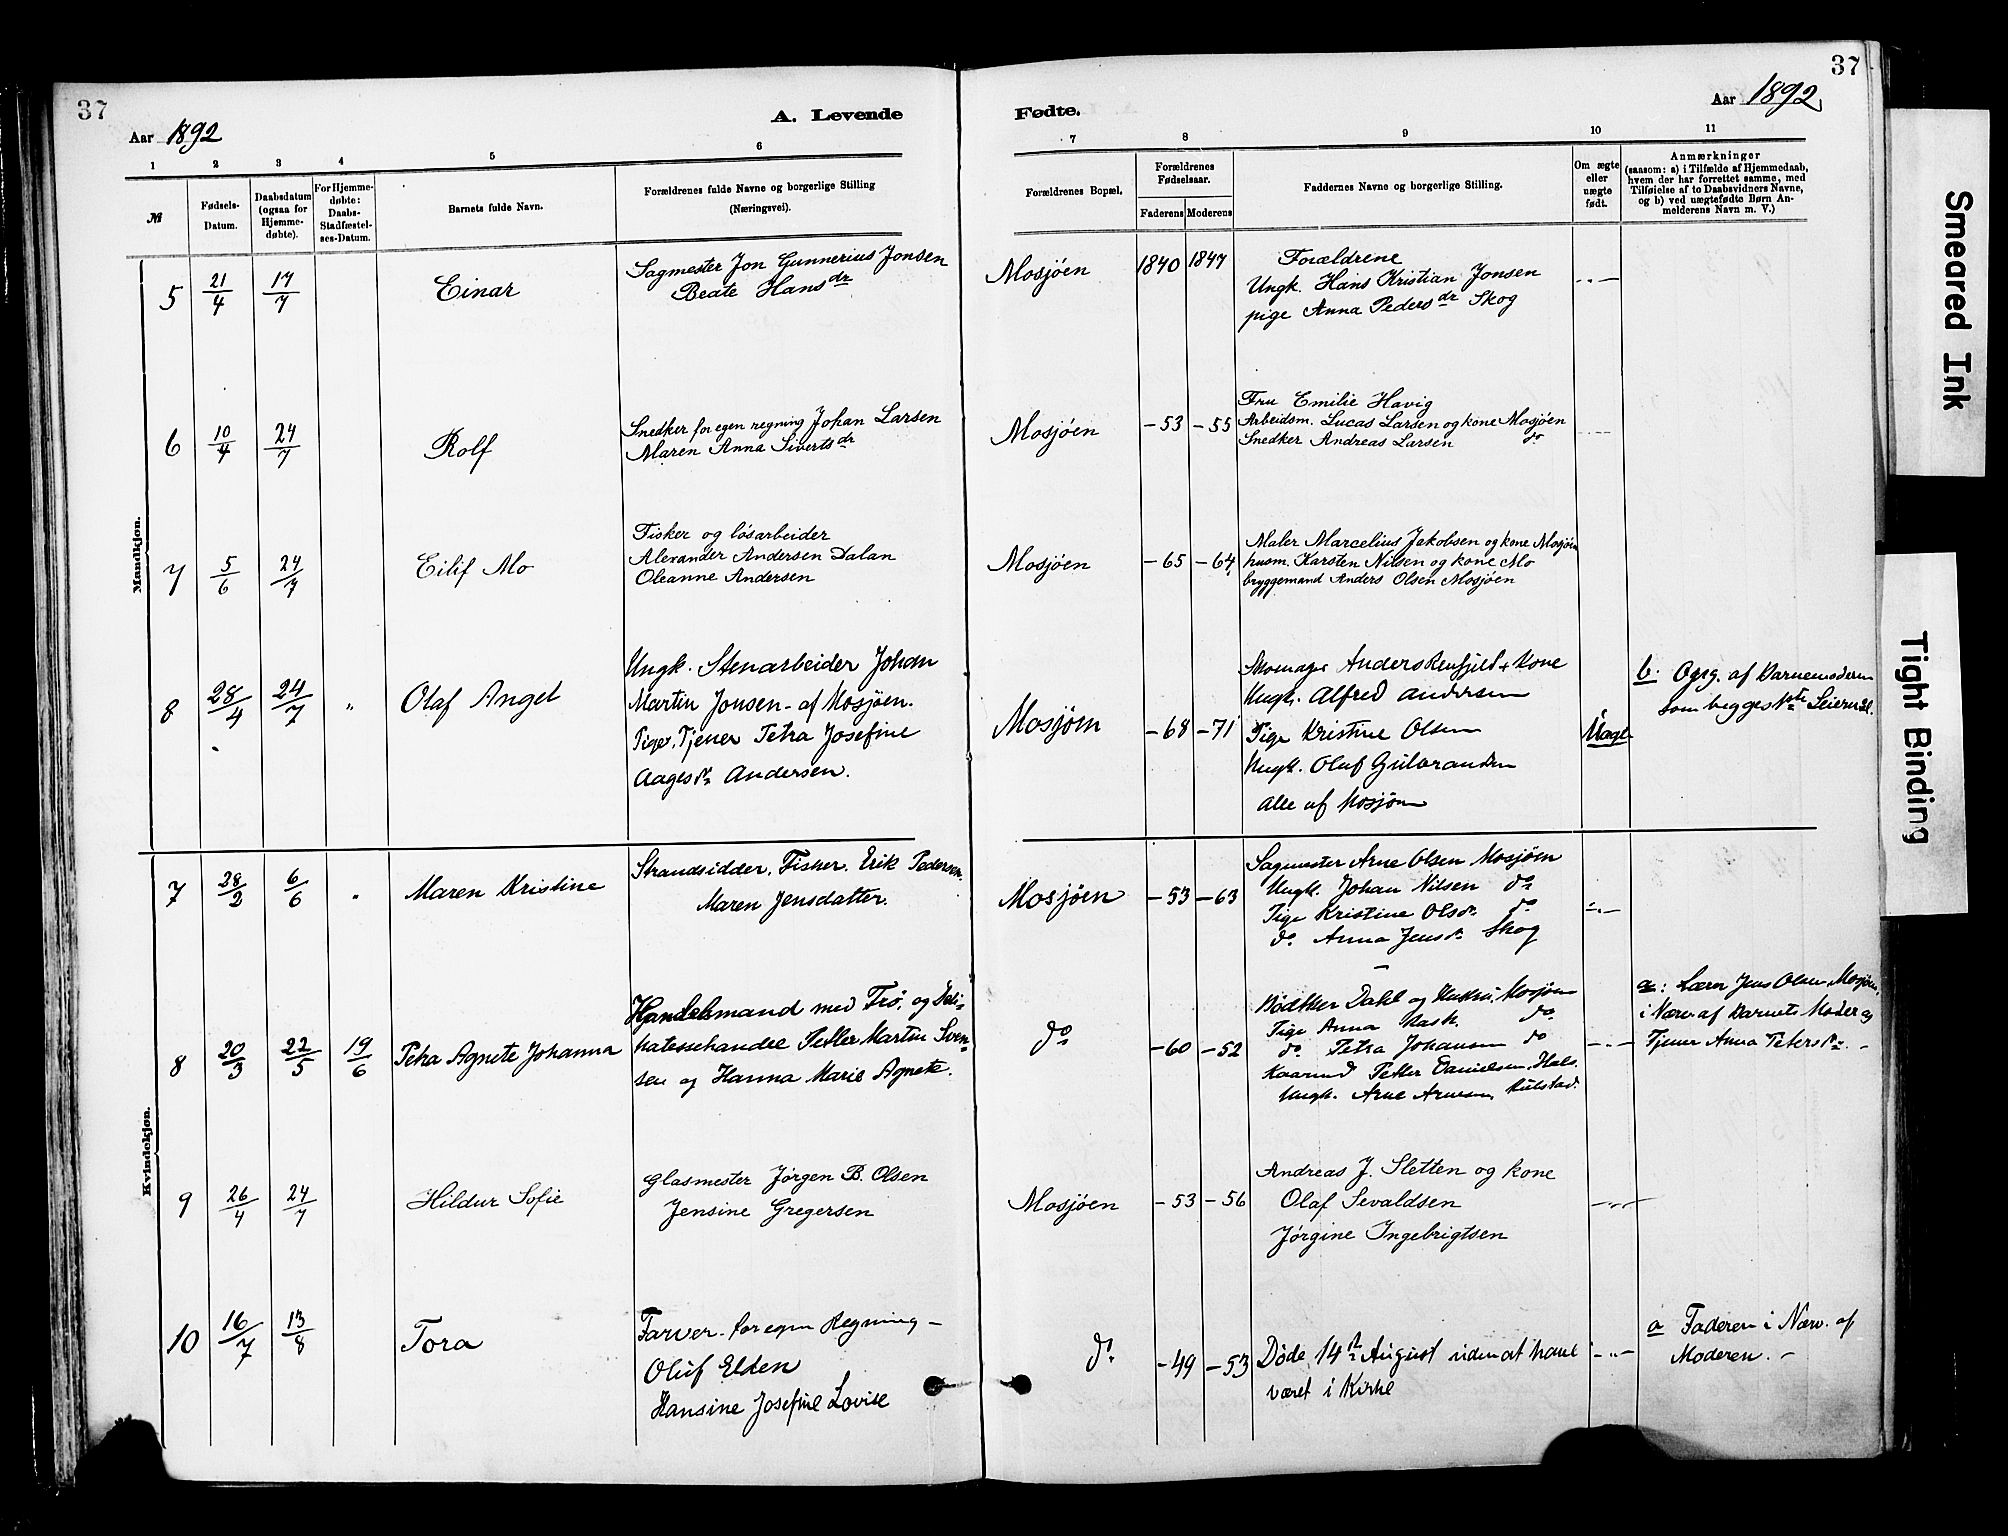 37
37
Aar 1892
A. Levende
Fødte.
Aar 1892
1 2 3 4 5 6 7 8 9 10 11
№
Fødsels-Datum.
Daabsdatum (ogsaa for Hjemme-døbte).
For Hjemme-døbte: Daabs-Stadfæstel-ses-Datum.
Barnets fulde Navn.
Forældrenes fulde Navne og borgerlige Stilling
(Næringsvei).
Forældrenes Bopæl.
Forældrenes Fødselsaar.
Faderens Moderens
Faddernes Navne og borgerlige Stilling.
Om ægte eller uægte født.
Anmærkninger
(saasom: a) i Tilfælde af Hjemmedaab,
hvem der har forrettet samme, med
Tilføielse af to Daabsvidners Navne,
og b) ved uægtefødte Børn An-
melderens Navn m. V.)
Mandkjøn.
5 21/4 17/7 Einar
Sagmester Jon Gunnerius Jonsen
Beate Hansdr
Mosjöen 1840 1847
Forældrene
Ungk. Hans Kristian Jonsen
pige Anna Pedersdr Skog
-"-
6 10/4 24/7 Rolf
Snedker for egen regning Johan Larsen
Maren Anna Sivertsdr
Mosjöen -53 -55
Fru Emilie Havig
Arbeidsm. Lucas Larsen og kone Mosjöen
Snedker Andreas Larsen do
7 5/6 24/7 Eilif Mo
Fisker og lösarbeider
Alexander Andersen Dalan
Oleanne Andersen
Mosjöen -65 -64
Maler Marcelius Jakobsen og kone Mosjöen
husm. Karsten Nilsen og kone Mo
bryggemand Anders Olsen Mosjöen
8 28/4 24/7 " Olaf Angel
Ungk. Stenarbeider Johan
Martin Jonsen - af Mosjöen.
Pige, Tjener Petra Josefine
Aagesdr Andersen.
Mosjöen -68 -71
Skomager Anders Renfjeld + Kone
Ungk. Alfred Andersen
Pige Kristine Olsen
Ungk. Olaf Gulbrandsen
alle af Mosjöen
Uægt
b. Opg. af Barnemoderen
som begges 1ste Leierm.
Kvindekjøn.
7 28/2 6/6 " Maren Kristine
Strandsidder, Fisker. Erik Pedersen.
Maren Jensdatter.
Mosjöen -53 -63
Sagmester Arne Olsen Mosjöen
Ungk. Johan Nilsen do
Pige Kristine Olsdr. do
do Anna Jensdr Skog
-"-
8 20/3 22/5 19/6 Petra Agnete Johanna
Handelsmand med Frö- og Deli-
katessehandel Petter Martin Sven-
sen og Hanna Marie Agnete.
do -60 -52
Bödtker Dahl og Hustru, Mosjöen
Pige Anna Rask. do
do Petra Johansen do
Petter Danielsen, Hals.
Ungk. Arne Arnesen,
-"-
a: Lærer Jens Olsen, Mosjöen,
i Nærv. af Barnets Moder og
Tjener Anna Petersdr -
9 26/4 24/7 Hildur Sofie
Glasmester Jörgen B. Olsen
Jensine Gregersen
Mosjöen -53 -56
Andreas J. Sletten og kone
Olaf Sevaldsen
Jörgine Ingebrigtsen
-"-
10 16/7 13/8 Tora
Farver - for egen Regning -
Oluf Elden
Hansine Josefine Lovise
do -49 -53
Döde 14de August uden at have
været i Kirke
-"-
a Faderen i Nærv. af
Moderen. -
Smeared Ink
Tight Binding